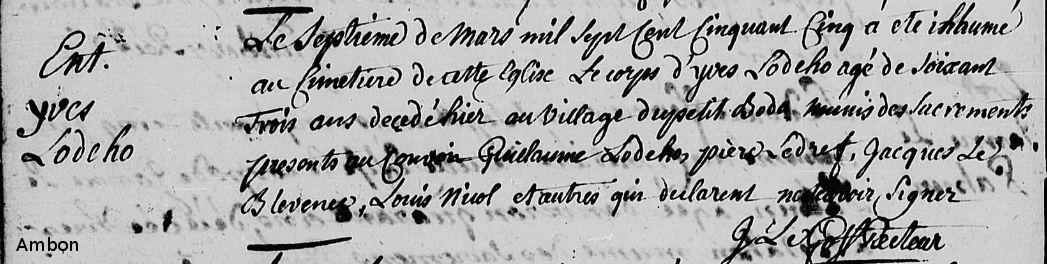 Ent.
yves
Lodeho
Le Septiême de Mars mil Sept Cent Cinquant Cinq a eté inhumé
au Cimetiere de cette Eglise Le corps d'yves Lodeho agé de Soixant
Trois ans decedé hier au Village du petit Boda munis des Sacrements
presents au Convoir Guillaume Lodeho, pierre Ledref, Jacques Le
Blevenec, Louis Nicol et autres qui declarent ne scavoir Signer
J Le Recteur
Ambon